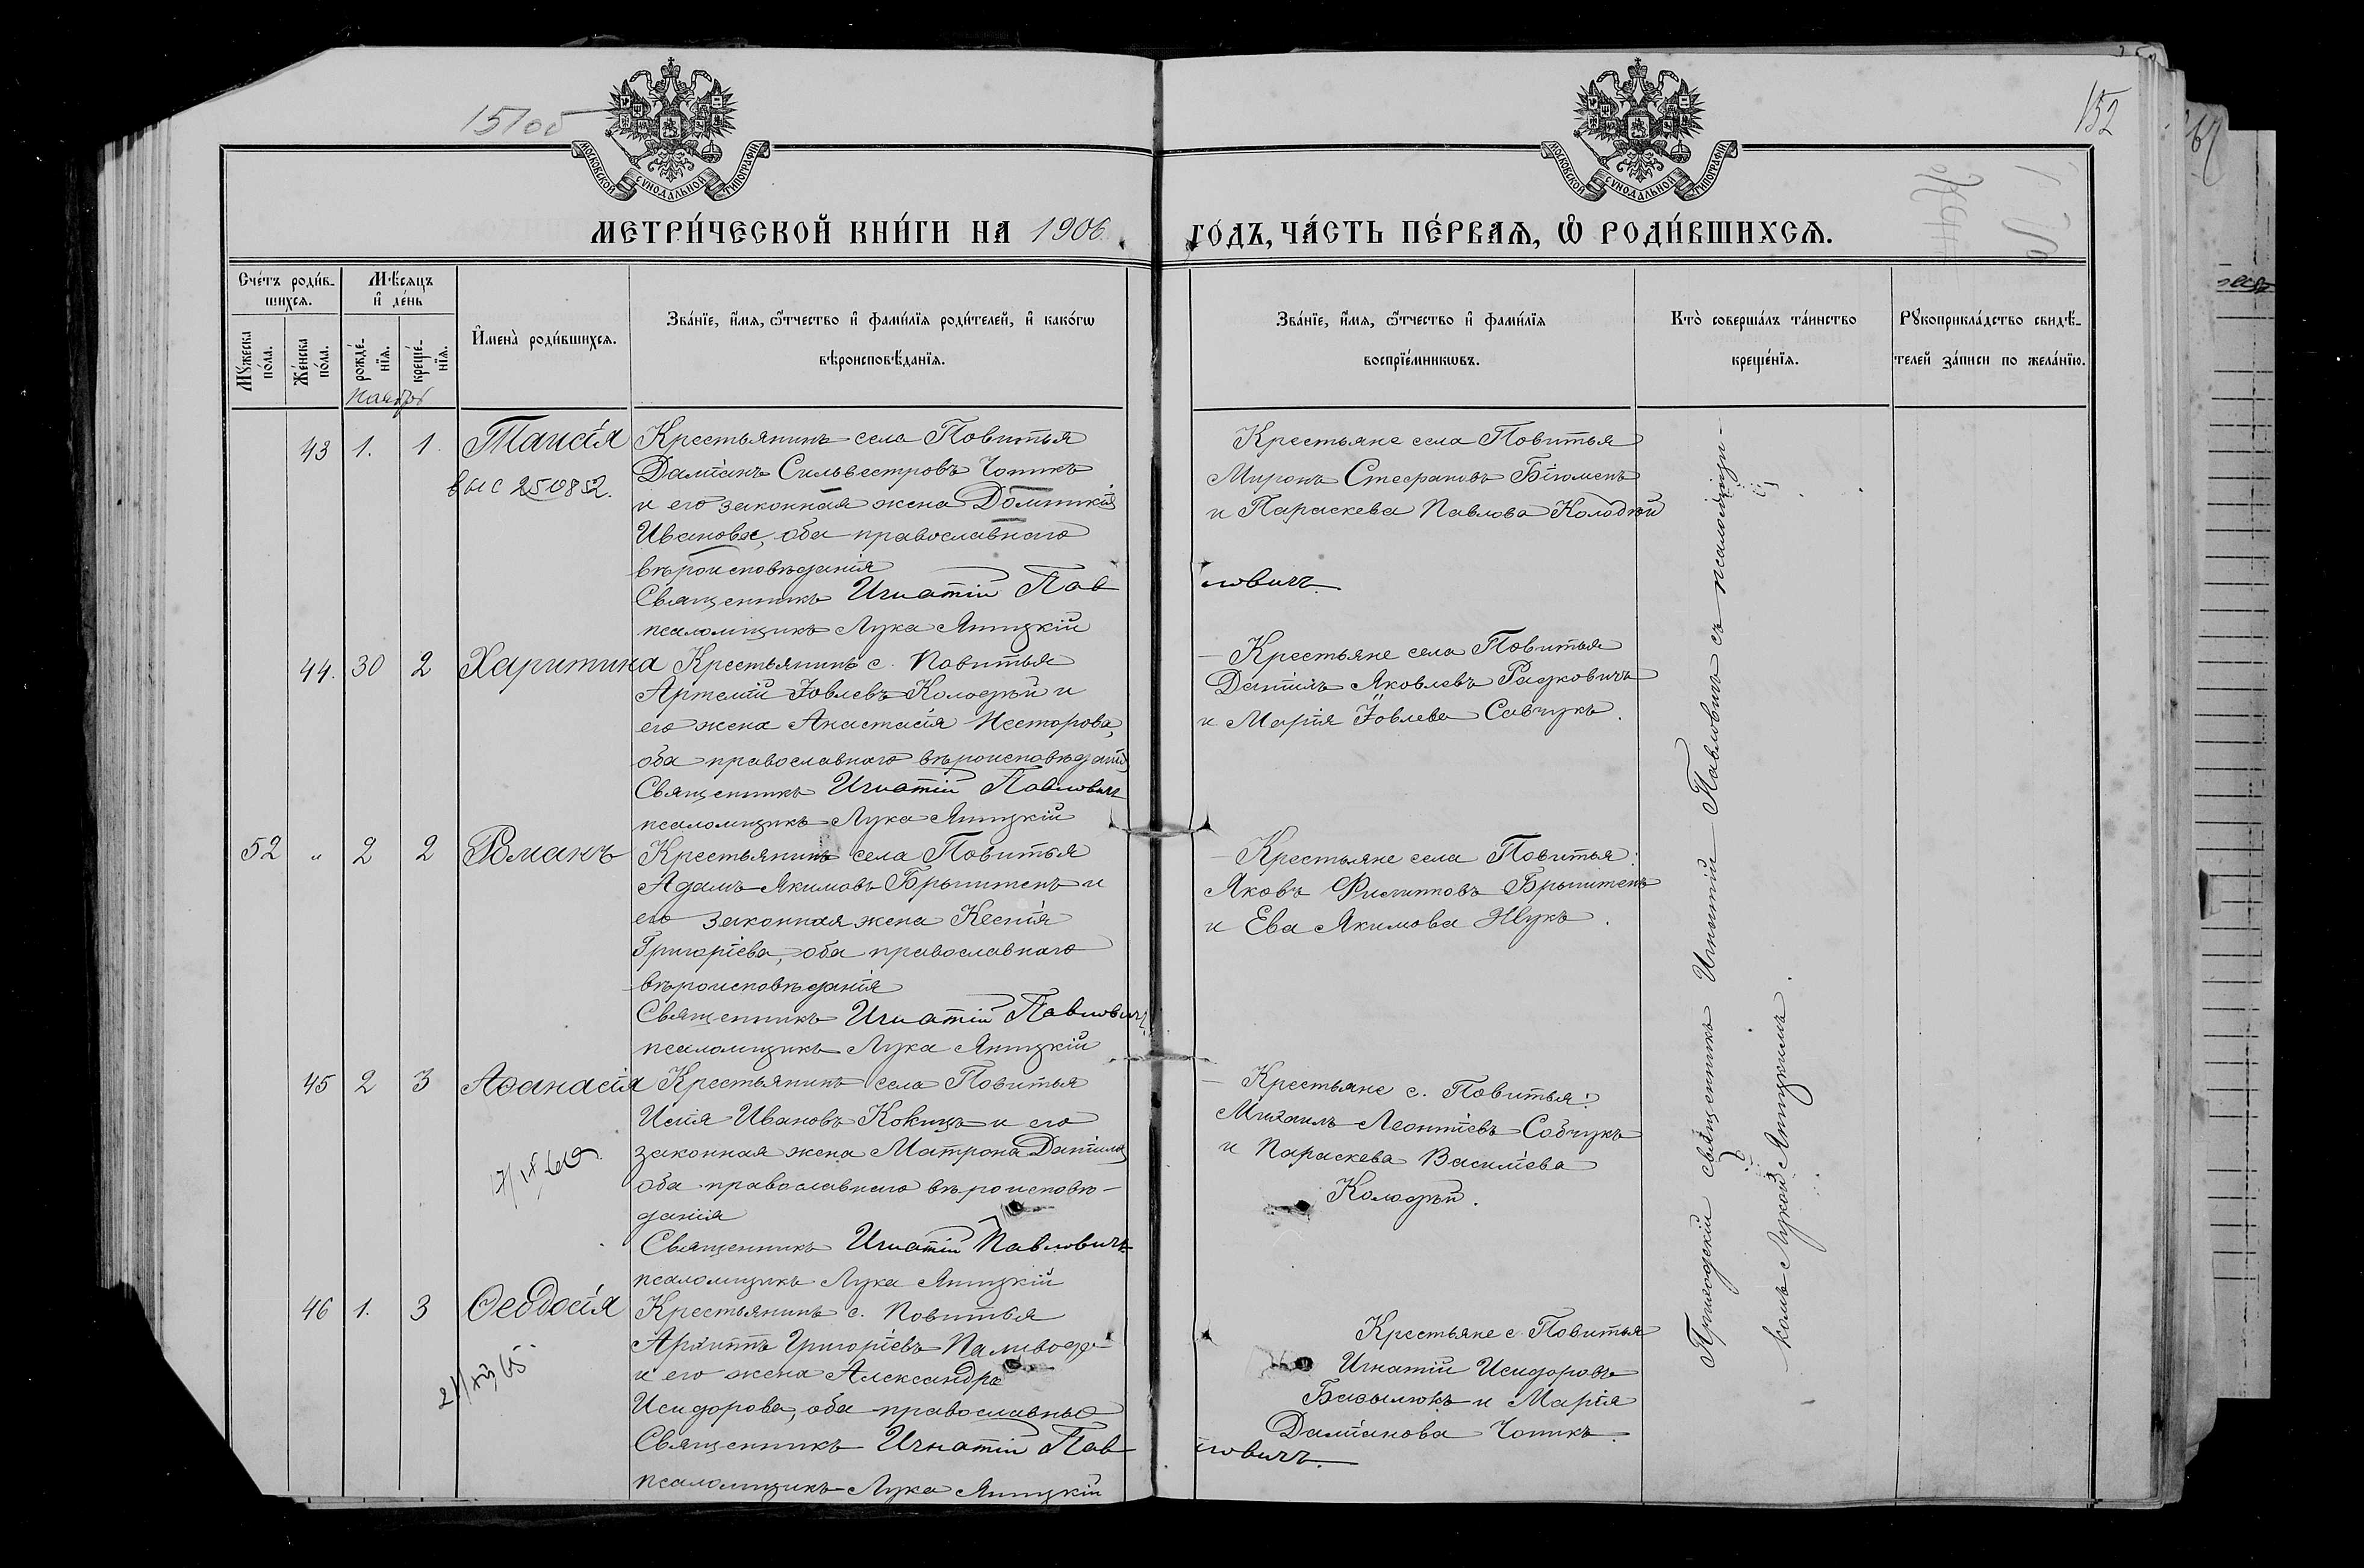 151об
152
МОСКОВСКОЙ СѴНОДАЛЬНОЙ ТИПОГРАФІИ
МОСКОВСКОЙ СѴНОДАЛЬНОЙ ТИПОГРАФІИ
МЕТРИ́ЧЕСКОЙ КНИ́ГИ НА 1906
ГО́ДЪ, ЧА́СТЬ ПЕ́РВАѦ, Ѡ РОДИ́ВШИХСѦ.
Сче́тъ роди́в-
шихсѧ.
Мꙋ́жеска
по́ла.
Же́нска
по́ла.
Мѣ́сѧцъ
и҆ де́нь
рожде́-
нїѧ.
креще́-
нїѧ.
И҆мена̀ роди́вшихсѧ.
Зва́нїе, и҆́мѧ, ѻ҆́тчество и҆ фами́лїѧ роди́телей, и҆ како́гѡ
вѣроисповѣ́данїѧ.
Зва́нїе, и҆́мѧ, ѻ҆́тчество и҆ фами́лїѧ
воспрїе́мникѡвъ.
Кто̀ соверша́лъ та́инство
креще́нїѧ.
Рꙋкоприкла́дство свидѣ́-
телей за́писи по жела́нїю.
Ноябрь
43 1. 1. Таисія
выс 250852.
Крестьянинъ села Повитья
Даміанъ Сильвестровъ Чопикъ
и его законная жена Домникія
Иванова, оба православнаго
вѣроисповѣданія
Священникъ Игнатій Пав
ловичъ.
псаломщикъ Лука Яницкій
Крестьяне села Повитья
Миронъ Стефановъ Бігоменъ
и Параскева Павлова Колодѣй
44. 30 2 Харитина
Крестьянинъ с. Повитья
Артемій Іовлевъ Колодѣй и
его жена Анастасія Несторова,
оба православнаго вѣроисповѣданія
Священникъ Игнатій Павловичъ
псаломщикъ Лука Яницкій
Крестьяне села Повитья
Даніилъ Яковлевъ Радковичъ
и Марія Іовлева Савчукъ.
52 " 2 2 Романъ
Крестьянинъ села Повитья
Адамъ Якимовъ Брынтенъ и
его законная жена Ксенія
Григоріева, оба православнаго
вѣроисповѣданія
Священникъ Игнатій Павловичъ
псаломщикъ Лука Яницкій
Крестьяне села Повитья:
Яковъ Филипповъ Брынтенъ
и Ева Якимова Жукъ.
45 2 3 Аѳанасія
Крестьянинъ села Повитья
Илія Ивановъ Кокицъ и его
законная жена Матрона Даніила
оба православнаго вѣроисповѣ-
данія
Священникъ Игнатій Павловичъ
псаломщикъ Лука Яницкій
Крестьяне с. Повитья:
Михаилъ Леонтіевъ Савчукъ
и Параскева Василіева
Колодѣй.
46 1. 3 Ѳеодосія
Крестьянинъ с. Повитья
Архиппъ Григоріевъ Паливода
и его жена Александра
Исидорова, оба православные
Священникъ Игнатій Пав
ловичъ.
псаломщикъ Лука Яницкій
Крестьяне с. Повитья
Игнатій Исидоровъ
Базылюкъ и Марія
Даміанова Чопикъ.
Приходскій священникъ Игнатій Павловичъ съ псаломщи-
комъ Лукой Яницкимъ.